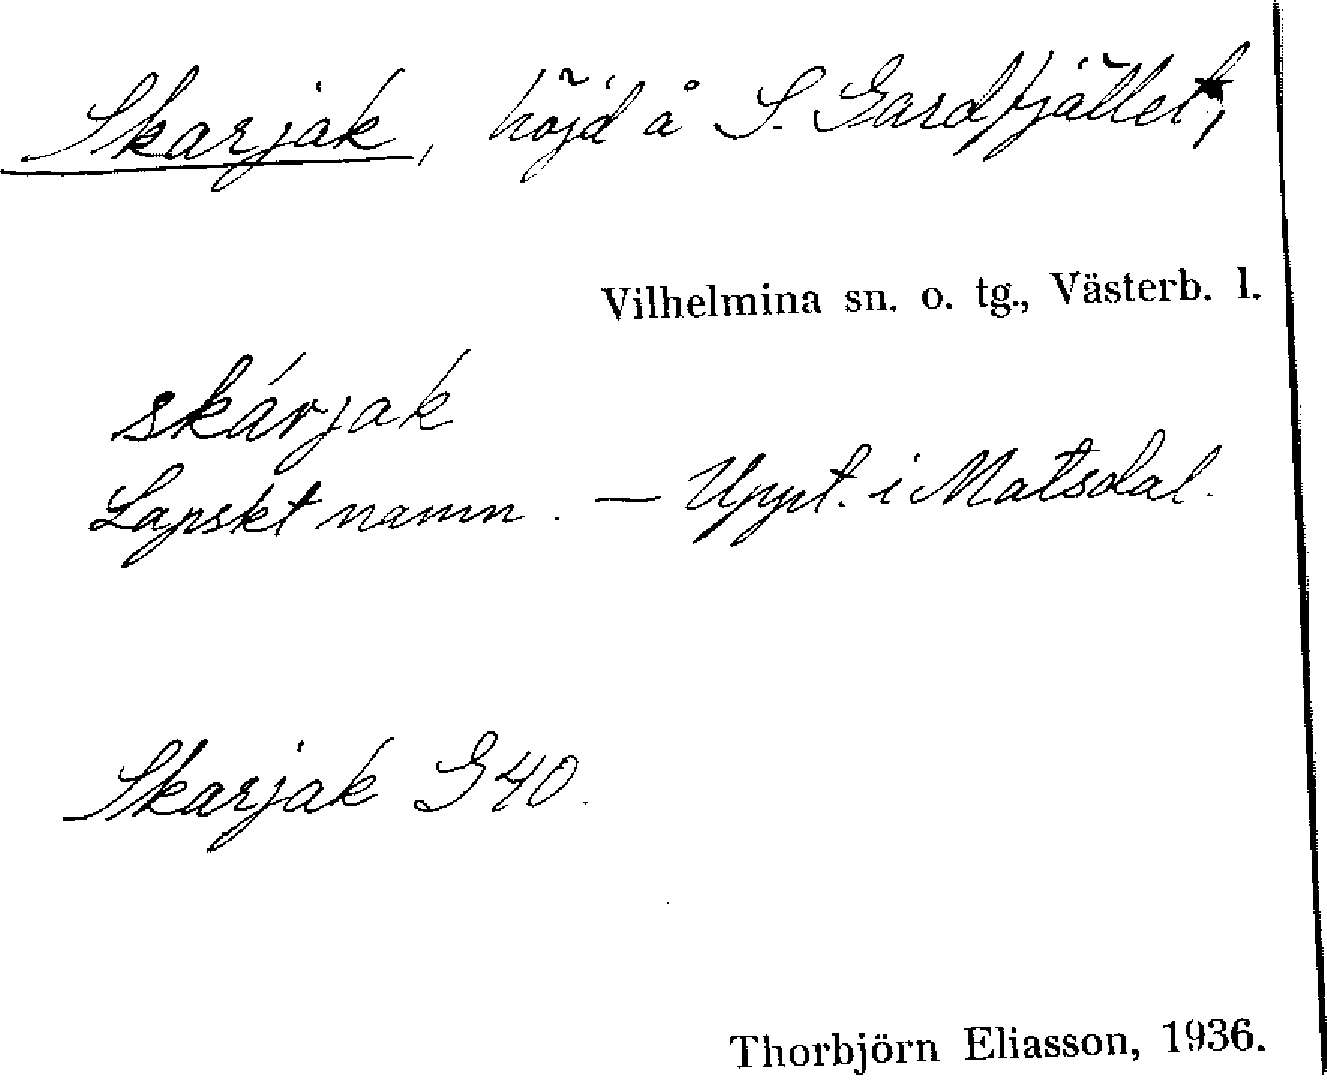 Skarjak, höjd å S. Gardfjället,
Vilhelmina sn. o. tg., Västerb. l.
skárjak
Lapskt namn. — Uppt. i Matsdal.
Skarjak G40.
Thorbjörn Eliasson, 1936.